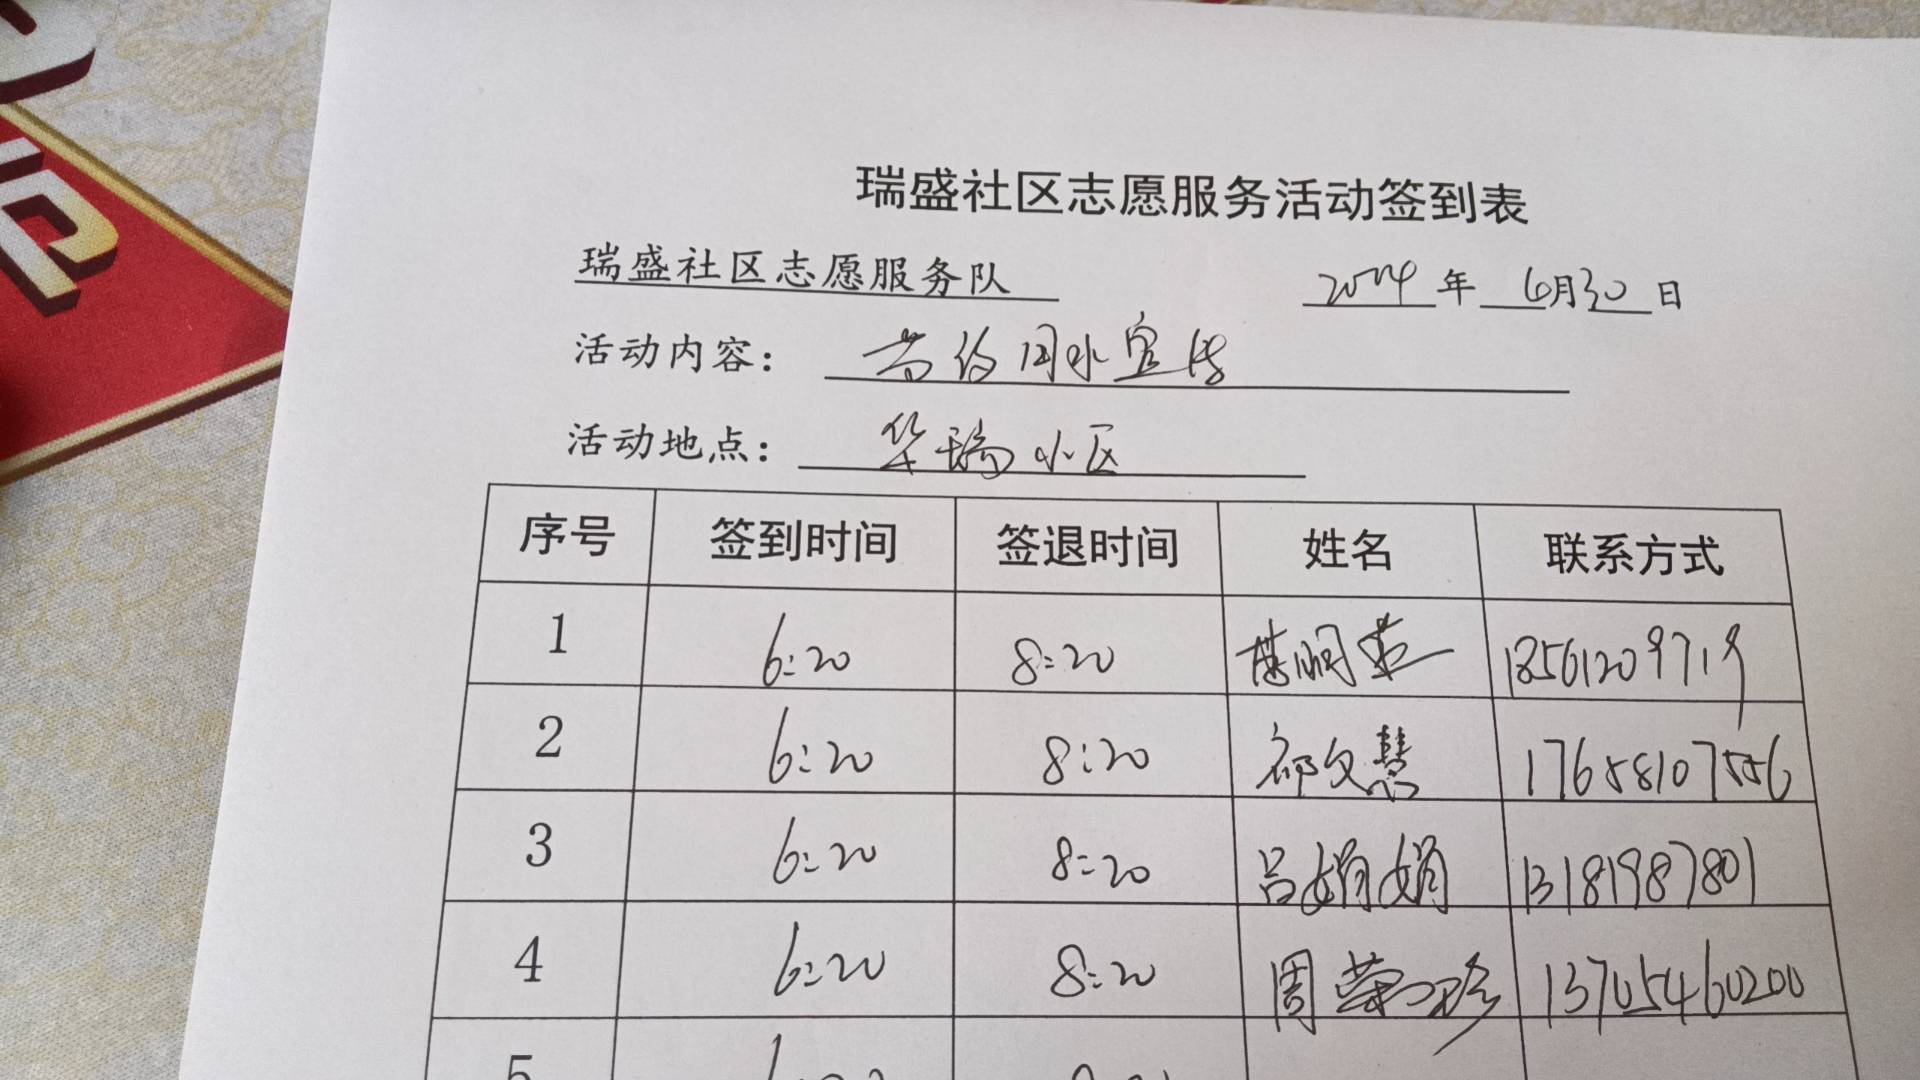 瑞盛社区志愿服务活动签到表
瑞盛社区志愿服务队 2024年6月30日
活动内容： 节约用水宣传
活动地点： 华瑞小区
序号 签到时间 签退时间 姓名 联系方式
1 6:20 8:20 18561209719
2 6:20 8:20 祁文慧 17658107556
3 6:20 8:20 吕娟娟 13181987801
4 6:20 8:20 周荣珍 13705460200
5